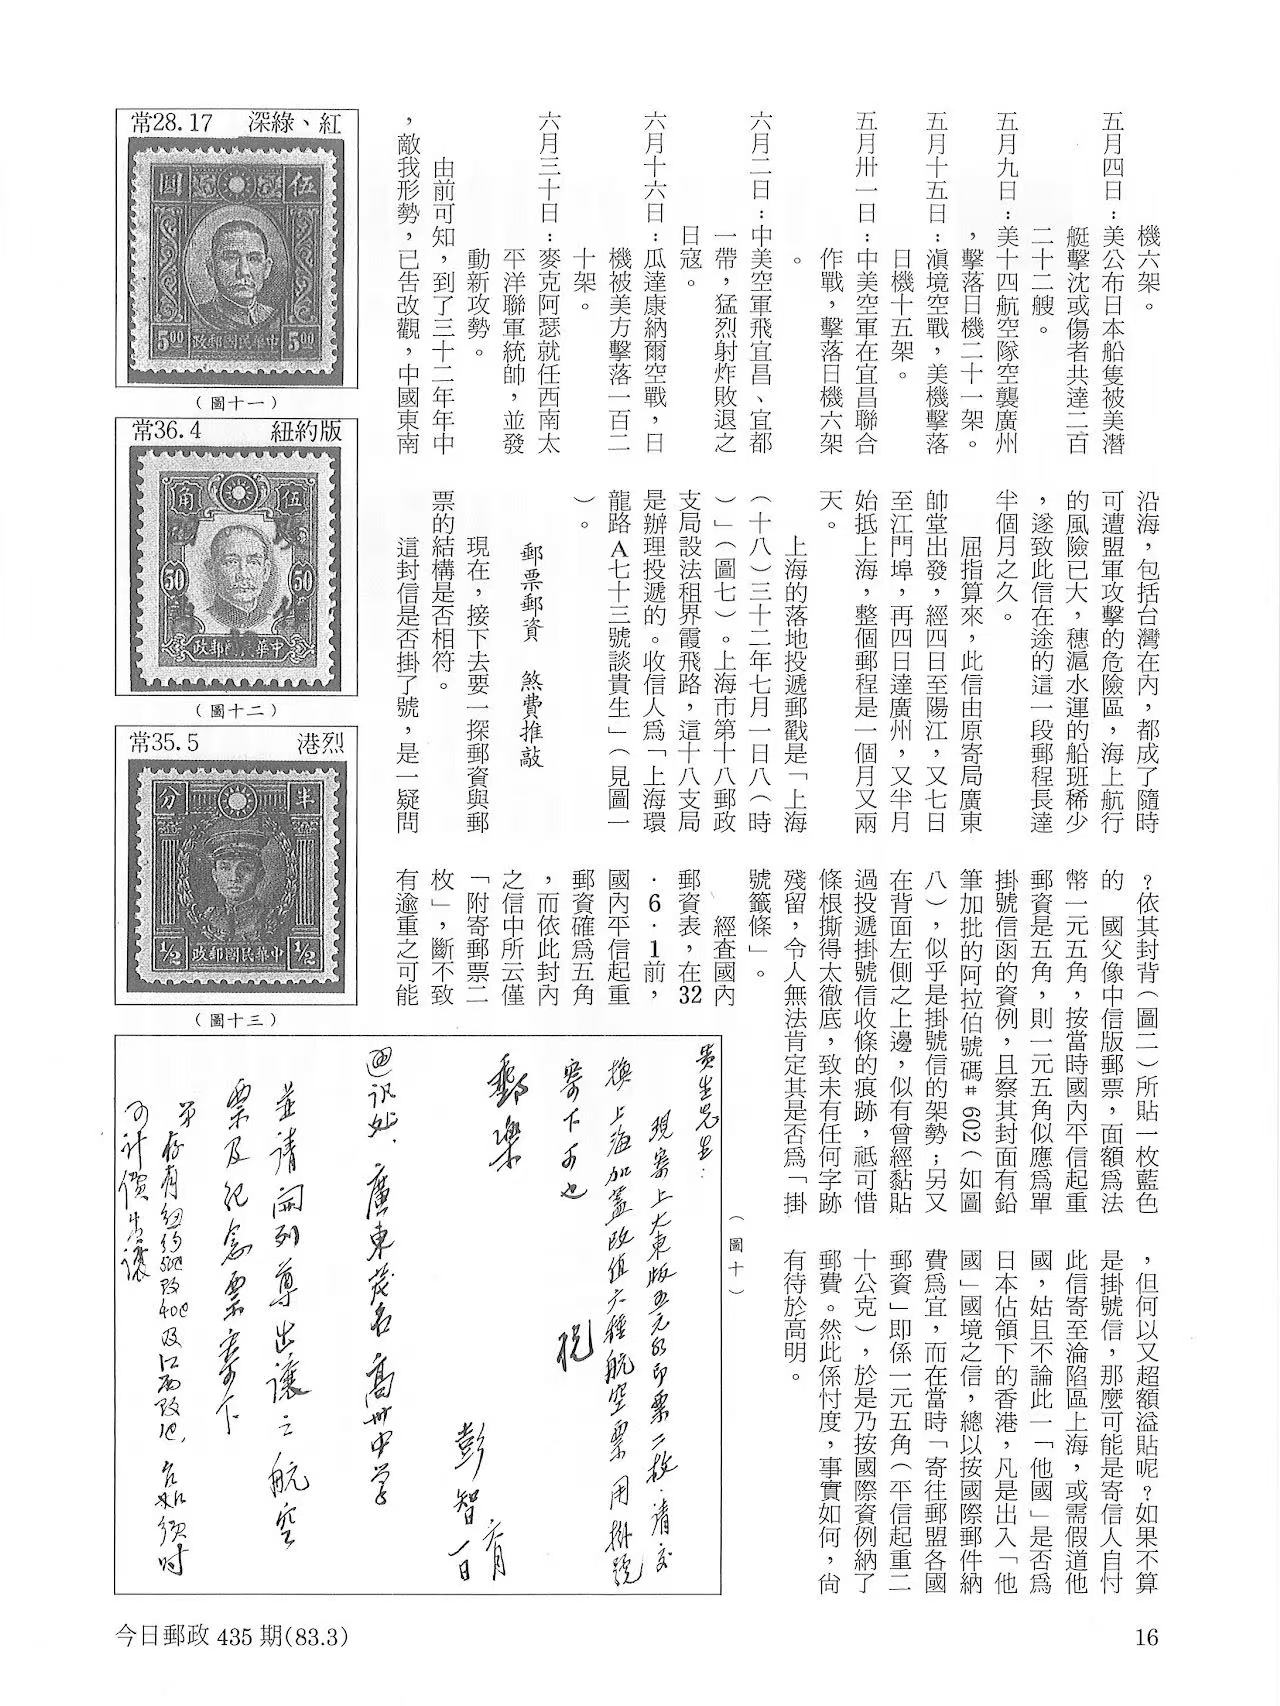 機六架。
五月四日：美公布日本船隻被美潛
艇擊沈或傷者共達二百
二十二艘。
五月九日：美十四航空隊空襲廣州
，擊落日機二十一架。
五月十五日：滇境空戰，美機擊落
日機十五架。
五月卅一日：中美空軍在宜昌聯合
作戰，擊落日機六架
。
六月二日：中美空軍飛宜昌、宜都
一帶，猛烈射炸敗退之
日寇。
六月十六日：瓜達康納爾空戰，日
機被美方擊落一百二
十架。
六月三十日：麥克阿瑟就任西南太
平洋聯軍統帥，並發
動新攻勢。
由前可知，到了三十二年年中
，敵我形勢，已告改觀，中國東南
沿海，包括台灣在內，都成了隨時
可遭盟軍攻擊的危險區，海上航行
的風險已大，穗滬水運的船班稀少
，遂致此信在途的這一段郵程長達
半個月之久。
屈指算來，此信由原寄局廣東
帥堂出發，經四日至陽江，又七日
至江門埠，再四日達廣州，又半月
始抵上海，整個郵程是一個月又兩
天。
上海的落地投遞郵戳是「上海
（十八）三十二年七月一日八（時
）」（圖七）。上海市第十八郵政
支局設法租界霞飛路，這十八支局
是辦理投遞的。收信人爲「上海環
龍路A七十三號談貴生」（見圖一
）。
郵票郵資　煞費推敲
現在，接下去要一探郵資與郵
票的結構是否相符。
這封信是否掛了號，是一疑問
？依其封背（圖二）所貼一枚藍色
的　國父像中信版郵票，面額爲法
幣一元五角，按當時國內平信起重
郵資是五角，則一元五角似應爲單
掛號信函的資例，且察其封面有鉛
筆加批的阿拉伯號碼#602（如圖
八），似乎是掛號信的架勢；另又
在背面左側之上邊，似有曾經黏貼
過投遞掛號信收條的痕跡，祇可惜
條根撕得太徹底，致未有任何字跡
殘留，令人無法肯定其是否爲「掛
號籤條」。
經查國內
郵資表，在32
．6．1前，
國內平信起重
郵資確爲五角
，而依此封內
之信中所云僅
「附寄郵票二
枚」，斷不致
有逾重之可能
，但何以又超額溢貼呢？如果不算
是掛號信，那麼可能是寄信人自忖
此信寄至淪陷區上海，或需假道他
國，姑且不論此一「他國」是否爲
日本佔領下的香港，凡是出入「他
國」國境之信，總以按國際郵件納
費爲宜，而在當時「寄往郵盟各國
郵資」即係一元五角（平信起重二
十公克），於是乃按國際資例納了
郵費。然此係忖度，事實如何，尚
有待於高明。
常28.17　深綠、紅
圓　伍
5 00　政郵國民華中　5 00
（圖十一）
常36.4　紐約版
角　伍
50　50
政郵國民華中
（圖十二）
常35.5　港烈
分　半
1/2　政郵國民華中　1/2
（圖十三）
（圖十）
貴生先生：
現寄上大東版五元紅印票二枚，請交
換上海加蓋改值六種航空票用掛號
寄下可也
祝
郵樂
彭智
六月
一日
通訊处：廣東茂名高州中学
並請開列尊出讓之航空
票及紀念票寄下
弟存有紐約版改40c及江西改地，
可計價出讓
今日郵政 435 期(83.3)
16